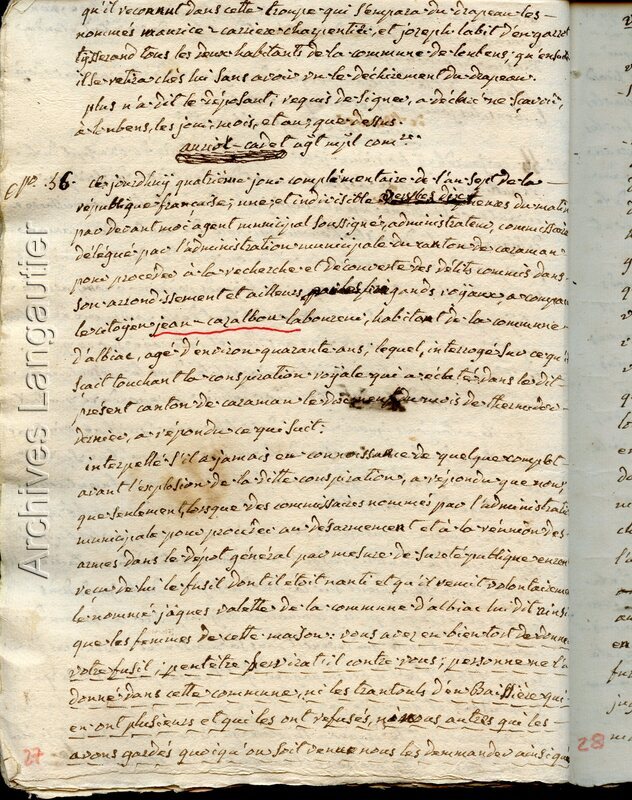 qu'il reconnut dans cette troupe qui s'empara du drapeau les
nommés maurice carriere charpentier, et joseph labit d'en
tisserand tous les deux habitants de la commune de loubens, qu'ensuite
il se retira chés lui sans avoir vu le déchirement du drapeau.
plus n'a dit le déposant, requis de signer, a déclaré ne sçavoir,
à loubens, les jour, mois, et an, que dessus.
cadet agt mpl comre
56. Ce jourdhuy quatrième jour complémentaire de l'an sept de la
république française, une et indivisible heures du matin
par devant moi agent municipal soussigné, administrateur, commissaire
délégué par l'administration municipale du canton de caraman
pour procéder à la recherche et découverte des délits commis dans
son arrondissement et ailleurs par les brigands royaux a comparu
le citoyen jean cazalbou laboureur, habitant de la commune
d'albiac, agé d'environ quarante ans, lequel, interrogé sur ce qu'il
sait touchant la conspiration royale qui a éclaté dans le dit
présent canton de caraman le du mois de thermidor
dernier, a répondu ce qui suit.
interpellé s'il a jamais eu connoissance de quelque complot
avant l'explosion de la ditte conspiration, a répondu que non,
que seulement, lorsque des commissaires nommés par l'administration
municipale pour procéder au désarmement et à la réunion des
armes dans le dépot général par mesure de sureté publique eurent
reçu de lui le fusil dont il étoit nanti et qu'il remit volontairement
le nommé jâques valette de la commune d'albiac lui dit ainsi
que les femmes de cette maison: vous avez eu bien tort de donner
votre fusil, peut être servirat il contre vous; personne ne l'a
donné dans cette commune, ni les trantouls d'en Baissière qui
en ont plusieurs et qui les ont refusés, ni nous autres qui les
avons gardés quoiqu'on soit venu nous les demander ainsi qu
27
28
Archives Langautier